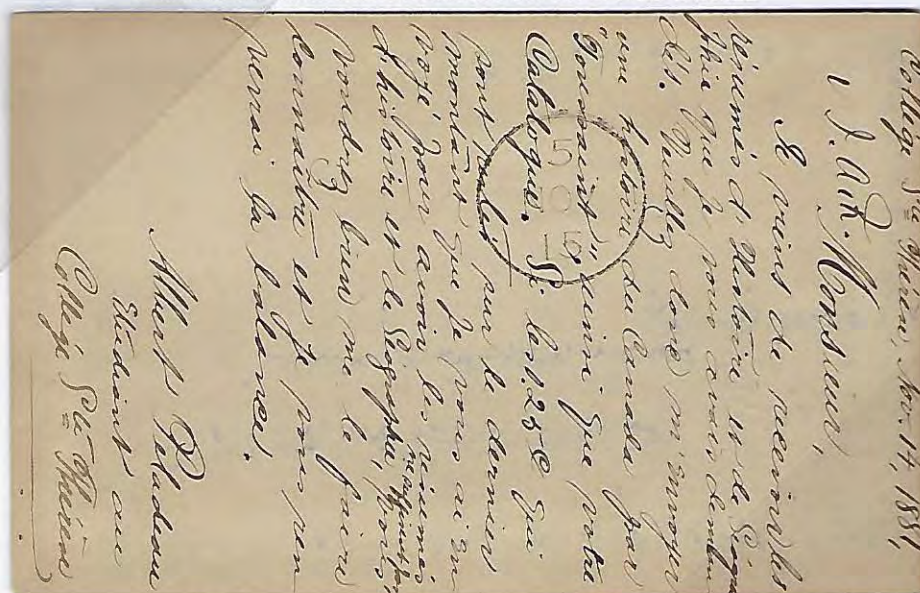 Collège Ste Thérèse, Nov. 14, 1881,
Monsieur,
Je viens de recevoir les
résumés d'Histoire et de Géogra
phie que je vous avais deman
dés. Veuillez donc m'envoyer
une histoire du Canada par
"Toussaint" ainsi que votre
Catalogue. Si les 1.25 qui
sont sur le dernier
montant que je vous ai en
voyé pour avoir les résumés
d'histoire et de Géographie, ne suffisent pas, vous
voudrez bien me le faire
connaître et je vous ren
verrai la balance.
Albert Paladeau
Etudiant au
Collège Ste Thérèse